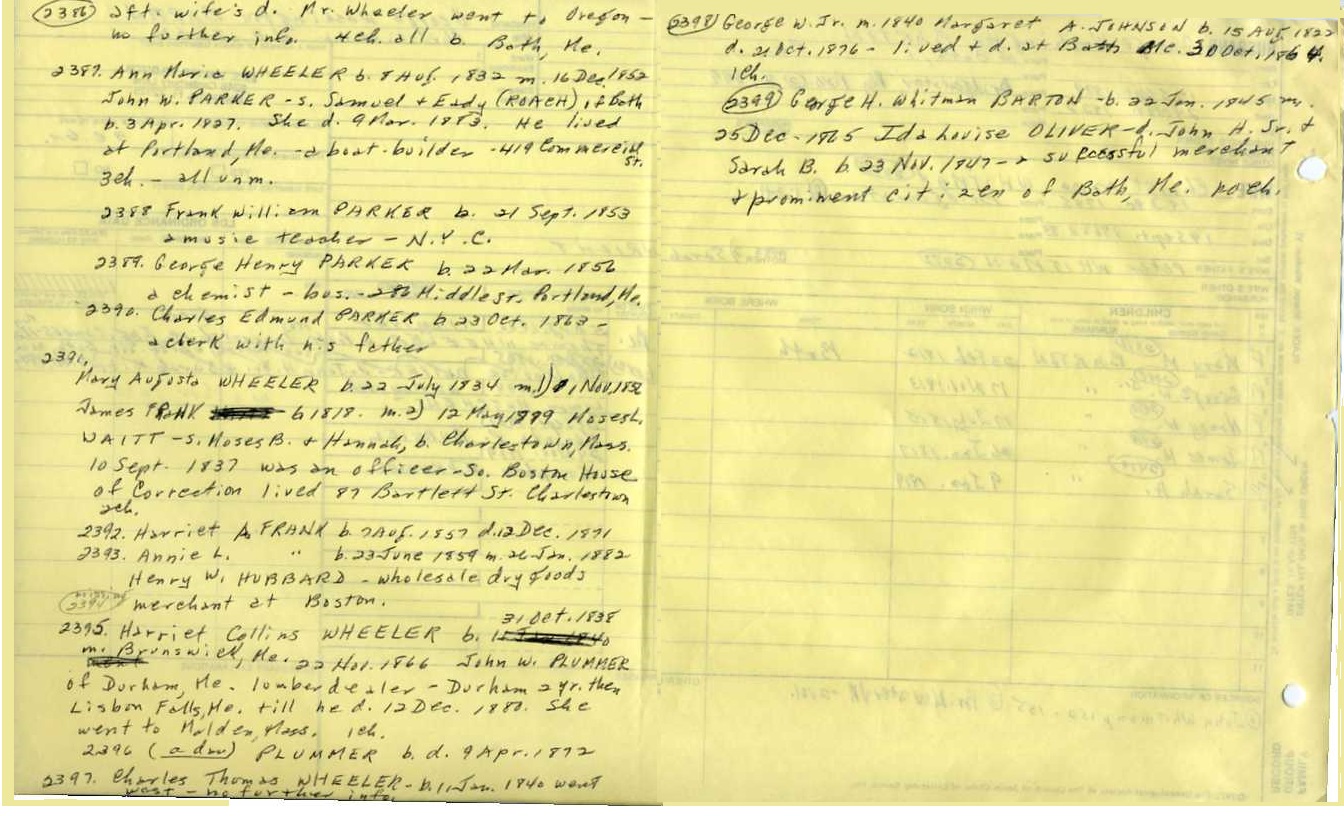 2386 aft. wife's d. Mr. Wheeler went to Oregon -
no further info. 4ch. all b. Bath, Me.
2387. Ann Maria WHEELER b. 8 Aug. 1832 m. 16 Dec. 1852
John W. PARKER - s. Samuel + Eady (ROACH) of Bath
b. 3 Apr. 1827. She d. 9 Mar. 1883. He lived
at Portland, Me. - a boat-builder - 419 Commercial St.
3ch. - all unm.
2388 Frank William PARKER b. 21 Sept. 1853
a music teacher - N.Y.C.
2389. George Henry PARKER b. 22 Mar. 1856
a chemist - bus. - 286 Middle St. Portland, Me.
2390. Charles Edmund PARKER b. 23 Oct. 1863 -
a clerk with his father
2391.
Mary Augusta WHEELER b. 22 July 1834 m. 1) 1 Nov. 1856
James FRANK b 1818. m. 2) 12 May 1889 Moses L.
WAITT - s. Moses B. + Hannah, b. Charlestown, Mass.
10 Sept. 1837 was an officer - So. Boston House
of Correction lived 87 Bartlett St. Charlestown
2ch.
2392. Harriet A FRANK b. 7 Aug. 1857 d. 12 Dec. 1871
2393. Annie L. " b. 23 June 1859 m. 26 Jan. 1882
Henry W. HUBBARD - wholesale dry goods
2394 merchant at Boston.
31 Oct. 1838
2395. Harriet Collins WHEELER b.
m. Brunswick, Me. 22 Nov. 1866 John W. PLUMMER
of Durham, Me. lumber dealer - Durham 2 yr. then
Lisbon Falls, Me. till he d. 12 Dec. 1880. She
went to Malden, Mass. 1ch.
2396 (a dau) PLUMMER b. d. 9 Apr. 1872
2397. Charles Thomas WHEELER - b. 11 Jan. 1840 went
west - no further info.
2398 George W. Jr. m. 1840 Margaret A. JOHNSON b. 15 Aug 1822
d. 21 Oct. 1876 - lived + d. at Bath Me. 30 Oct. 1864.
1ch.
2399 George H. Whitman BARTON - b. 22 Jan. 1845 m.
25 Dec. 1865 Ida Louise OLIVER - d. John H. Sr. +
Sarah B. b. 23 Nov. 1847 - a successful merchant
+ prominent citizen of Bath, Me. no ch.